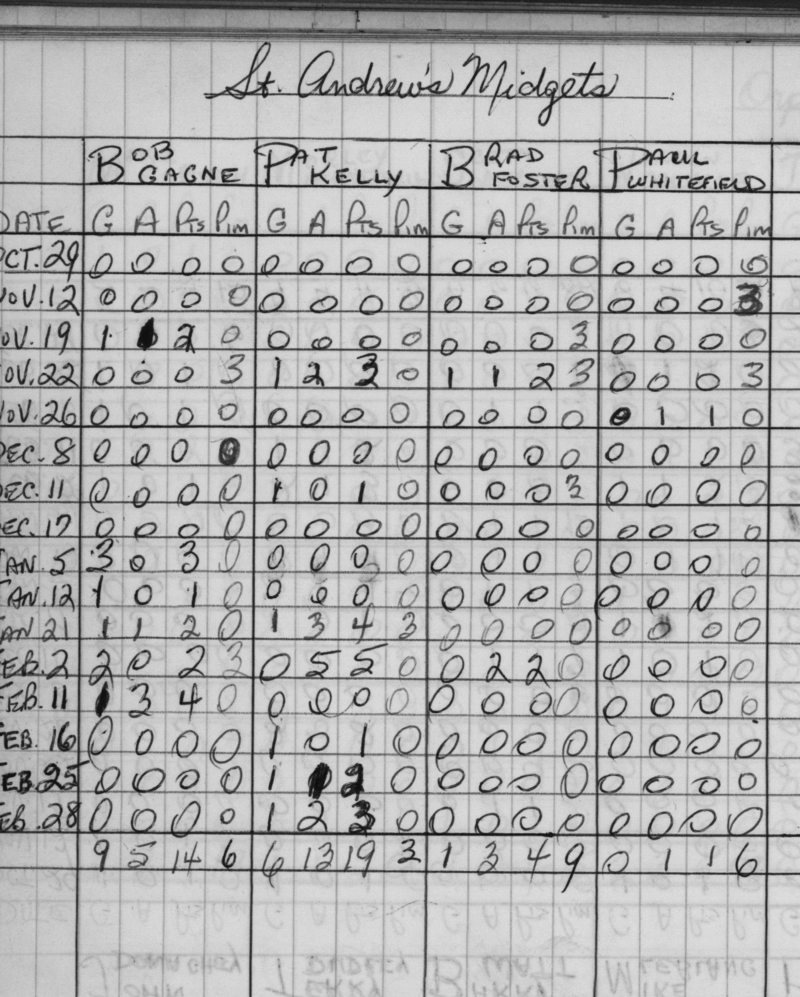 St. Andrew's Midgets
BOB GAGNE PAT KELLY BRAD FOSTER PAUL WHITEFIELD
DATE G A Pts Pim G A Pts Pim G A Pts Pim G A Pts Pim
OCT. 29 0 0 0 0 0 0 0 0 0 0 0 0 0 0 0 0
NOV. 12 0 0 0 0 0 0 0 0 0 0 0 0 0 0 0 3
NOV. 19 1 1 2 0 0 0 0 0 0 0 0 3 0 0 0 0
NOV. 22 0 0 0 3 1 2 3 0 1 1 2 3 0 0 0 3
NOV. 26 0 0 0 0 0 0 0 0 0 0 0 0 0 1 1 0
DEC. 8 0 0 0 0 0 0 0 0 0 0 0 0 0 0 0 0
DEC. 11 0 0 0 0 1 0 1 0 0 0 0 3 0 0 0 0
DEC. 17 0 0 0 0 0 0 0 0 0 0 0 0 0 0 0 0
JAN. 5 3 0 3 0 0 0 0 0 0 0 0 0 0 0 0 0
JAN. 12 1 0 1 0 0 0 0 0 0 0 0 0 0 0 0 0
JAN 21 1 1 2 0 1 3 4 3 0 0 0 0 0 0 0 0
FEB. 2 2 0 2 3 0 5 5 0 0 2 2 0 0 0 0 0
FEB. 11 1 3 4 0 0 0 0 0 0 0 0 0 0 0 0 0
FEB. 16 0 0 0 0 1 0 1 0 0 0 0 0 0 0 0 0
FEB. 25 0 0 0 0 1 1 2 0 0 0 0 0 0 0 0 0
FEB. 28 0 0 0 0 1 2 3 0 0 0 0 0 0 0 0 0
9 5 14 6 6 13 19 3 1 3 4 9 0 1 1 6